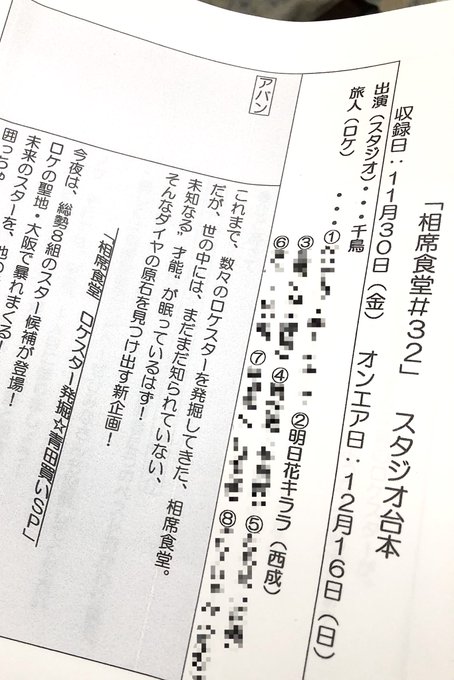 「相席食堂#32」 スタジオ台本
収録日：11月30日（金） オンエア日：12月16日（日）
出演（スタジオ）・・・千鳥
旅人（ロケ） ・・・① ②明日花キララ（西成）
③ ④ ⑤
⑥ ⑦ ⑧
アバン
これまで、数々のロケスターを発掘してきた、相席食堂。
だが、世の中には、まだまだ知られていない、
未知なる"才能"が眠っているはず！
そんなダイヤの原石を見つけ出す新企画！
「相席食堂 ロケスター発掘☆青田買いSP」
今夜は、総勢8組のスター候補が登場！
ロケの聖地・大阪で暴れまくる！
未来のスターを、
囲っちゃ